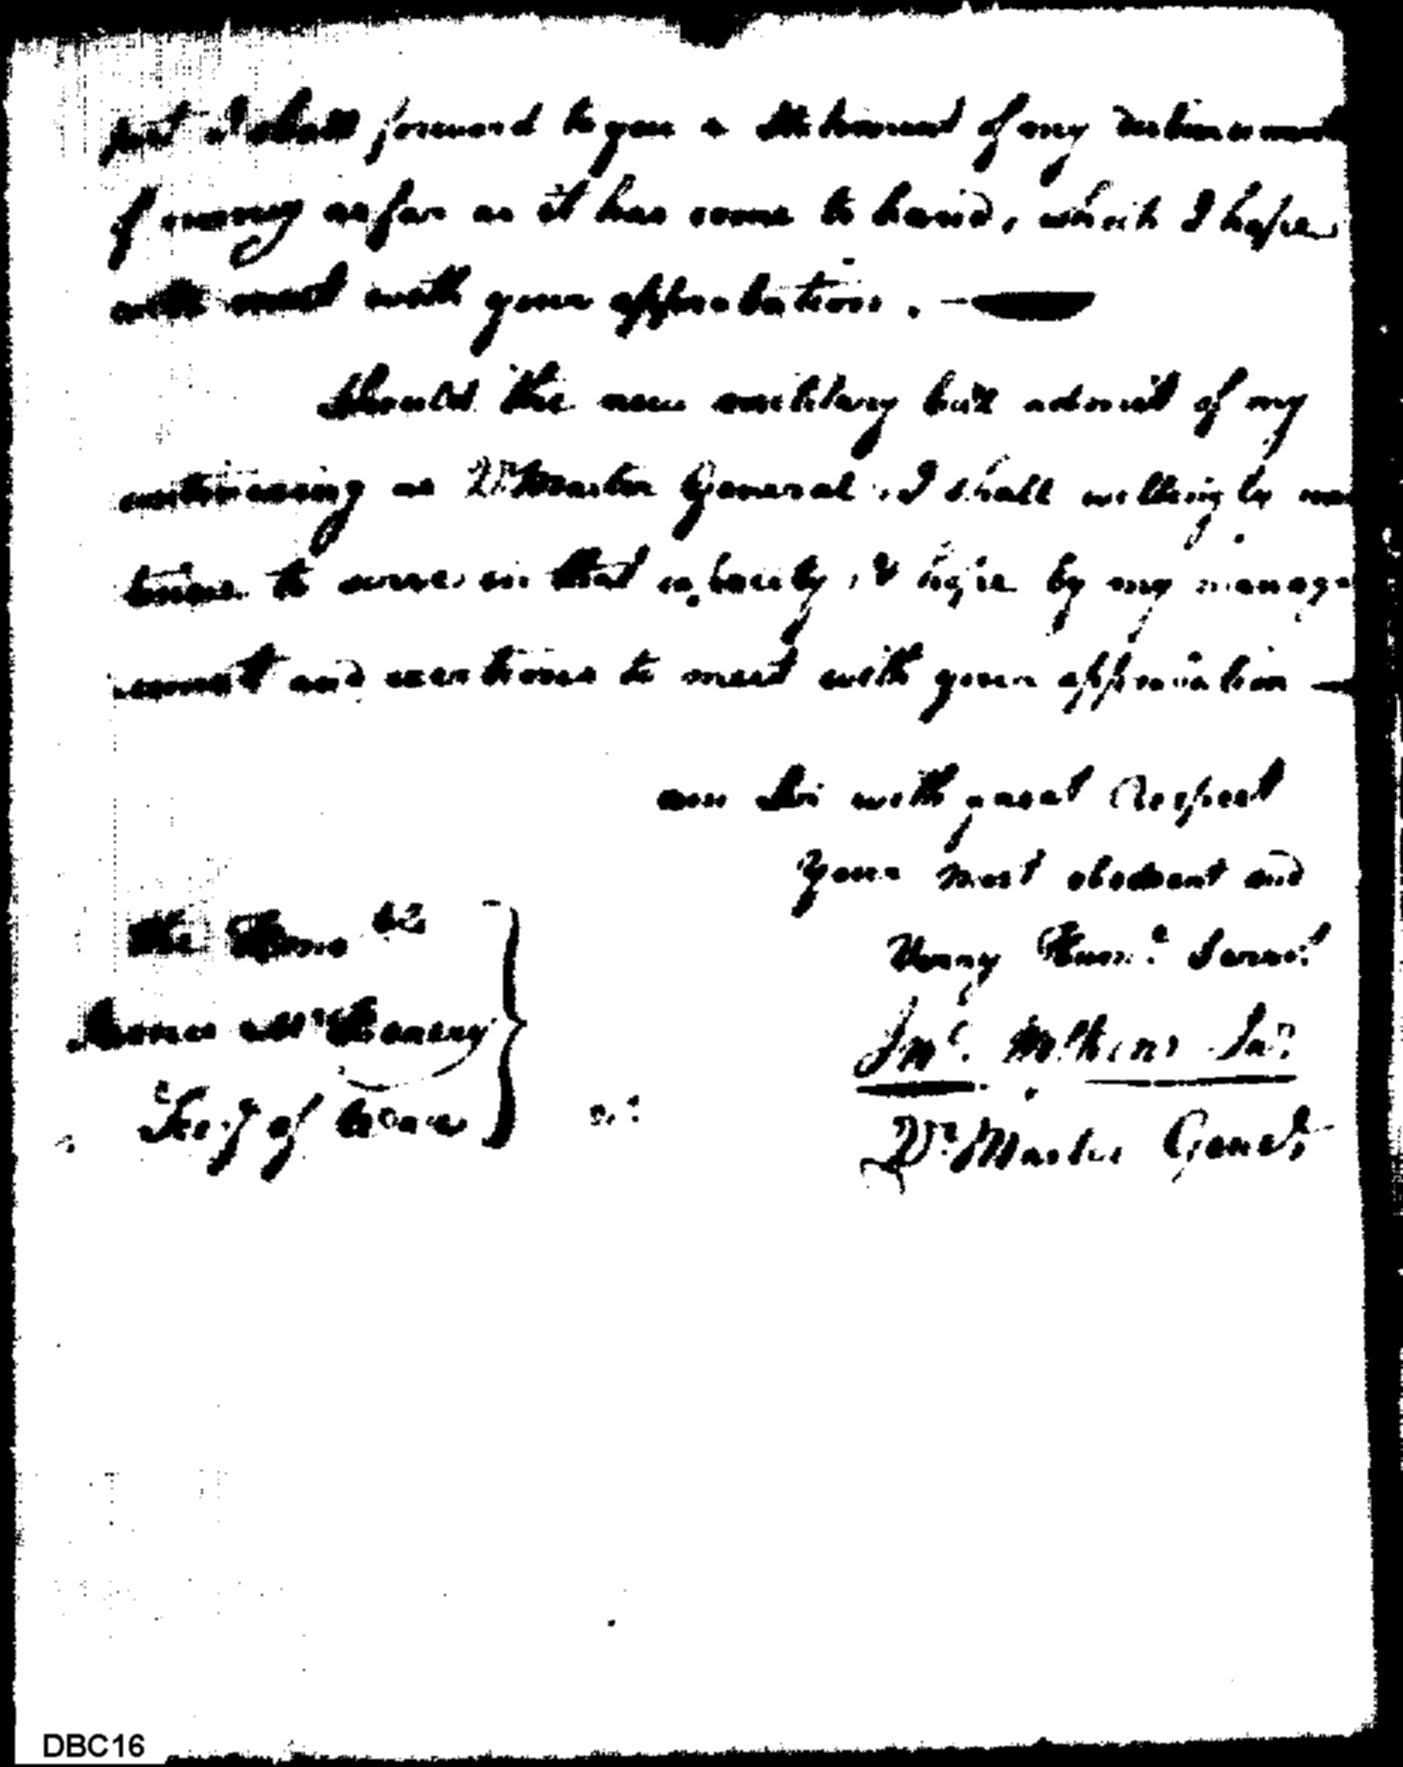 post I shall forward to you a Statement of my disbursements
of money as far as it has come to hand, which I hope
will meet with your approbation. —
Should the new military bill admit of my
continuing as Qr. Master General, I shall willingly con
tinue to serve in that capacity, & hope by my manage
ment and exertions to meet with your approbation —
am Sir with great Respect
Your most obedient and
Verry Humle Servt
Jno. Wilkins Jnr.
Qr. Master Genel
The Honoble
James McHenry
Secy of War
DBC16